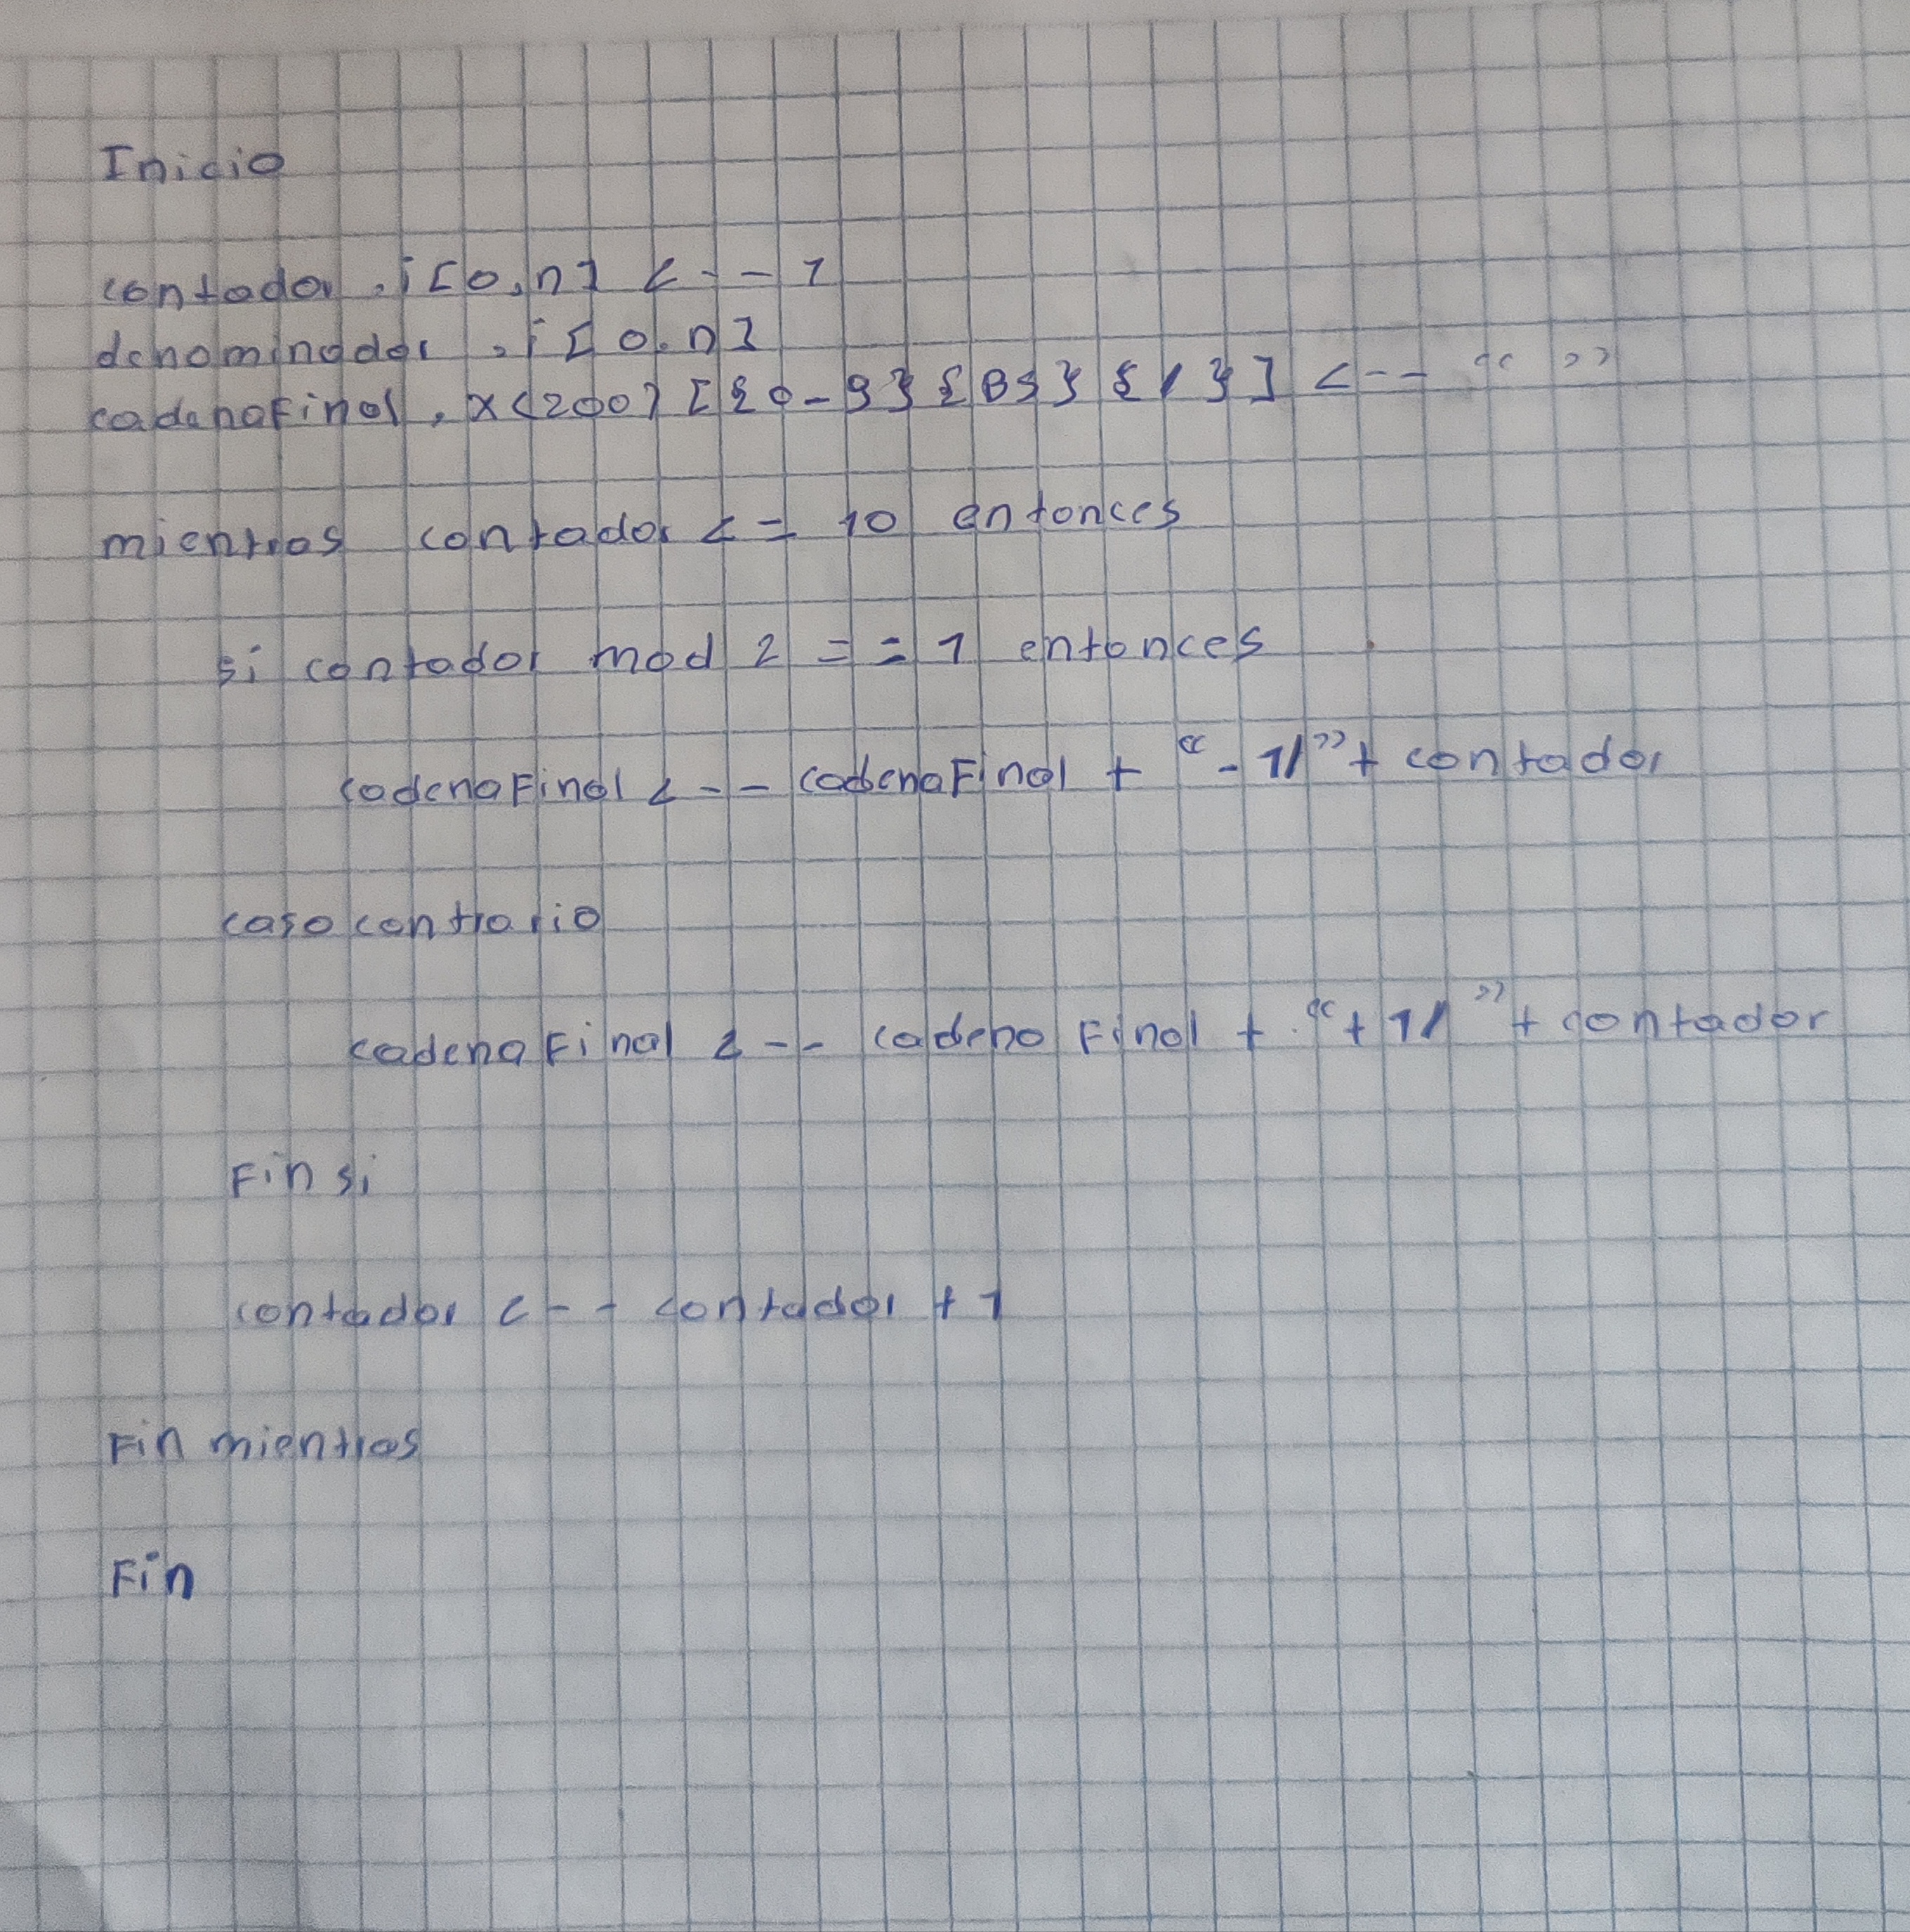 Inicio
contador, i[0,n] <-- 1
denominador, i[0,n]
cadenaFinal, x(200) [{0-9}{BS}{/}] <-- “ ”
mientras contador <= 10 entonces
si contador mod 2 == 1 entonces
cadenaFinal <-- cadenaFinal + “-1/” + contador
caso contrario
cadenaFinal <-- cadenaFinal + “+1/” + contador
Fin si
contador <-- contador + 1
Fin mientras
Fin